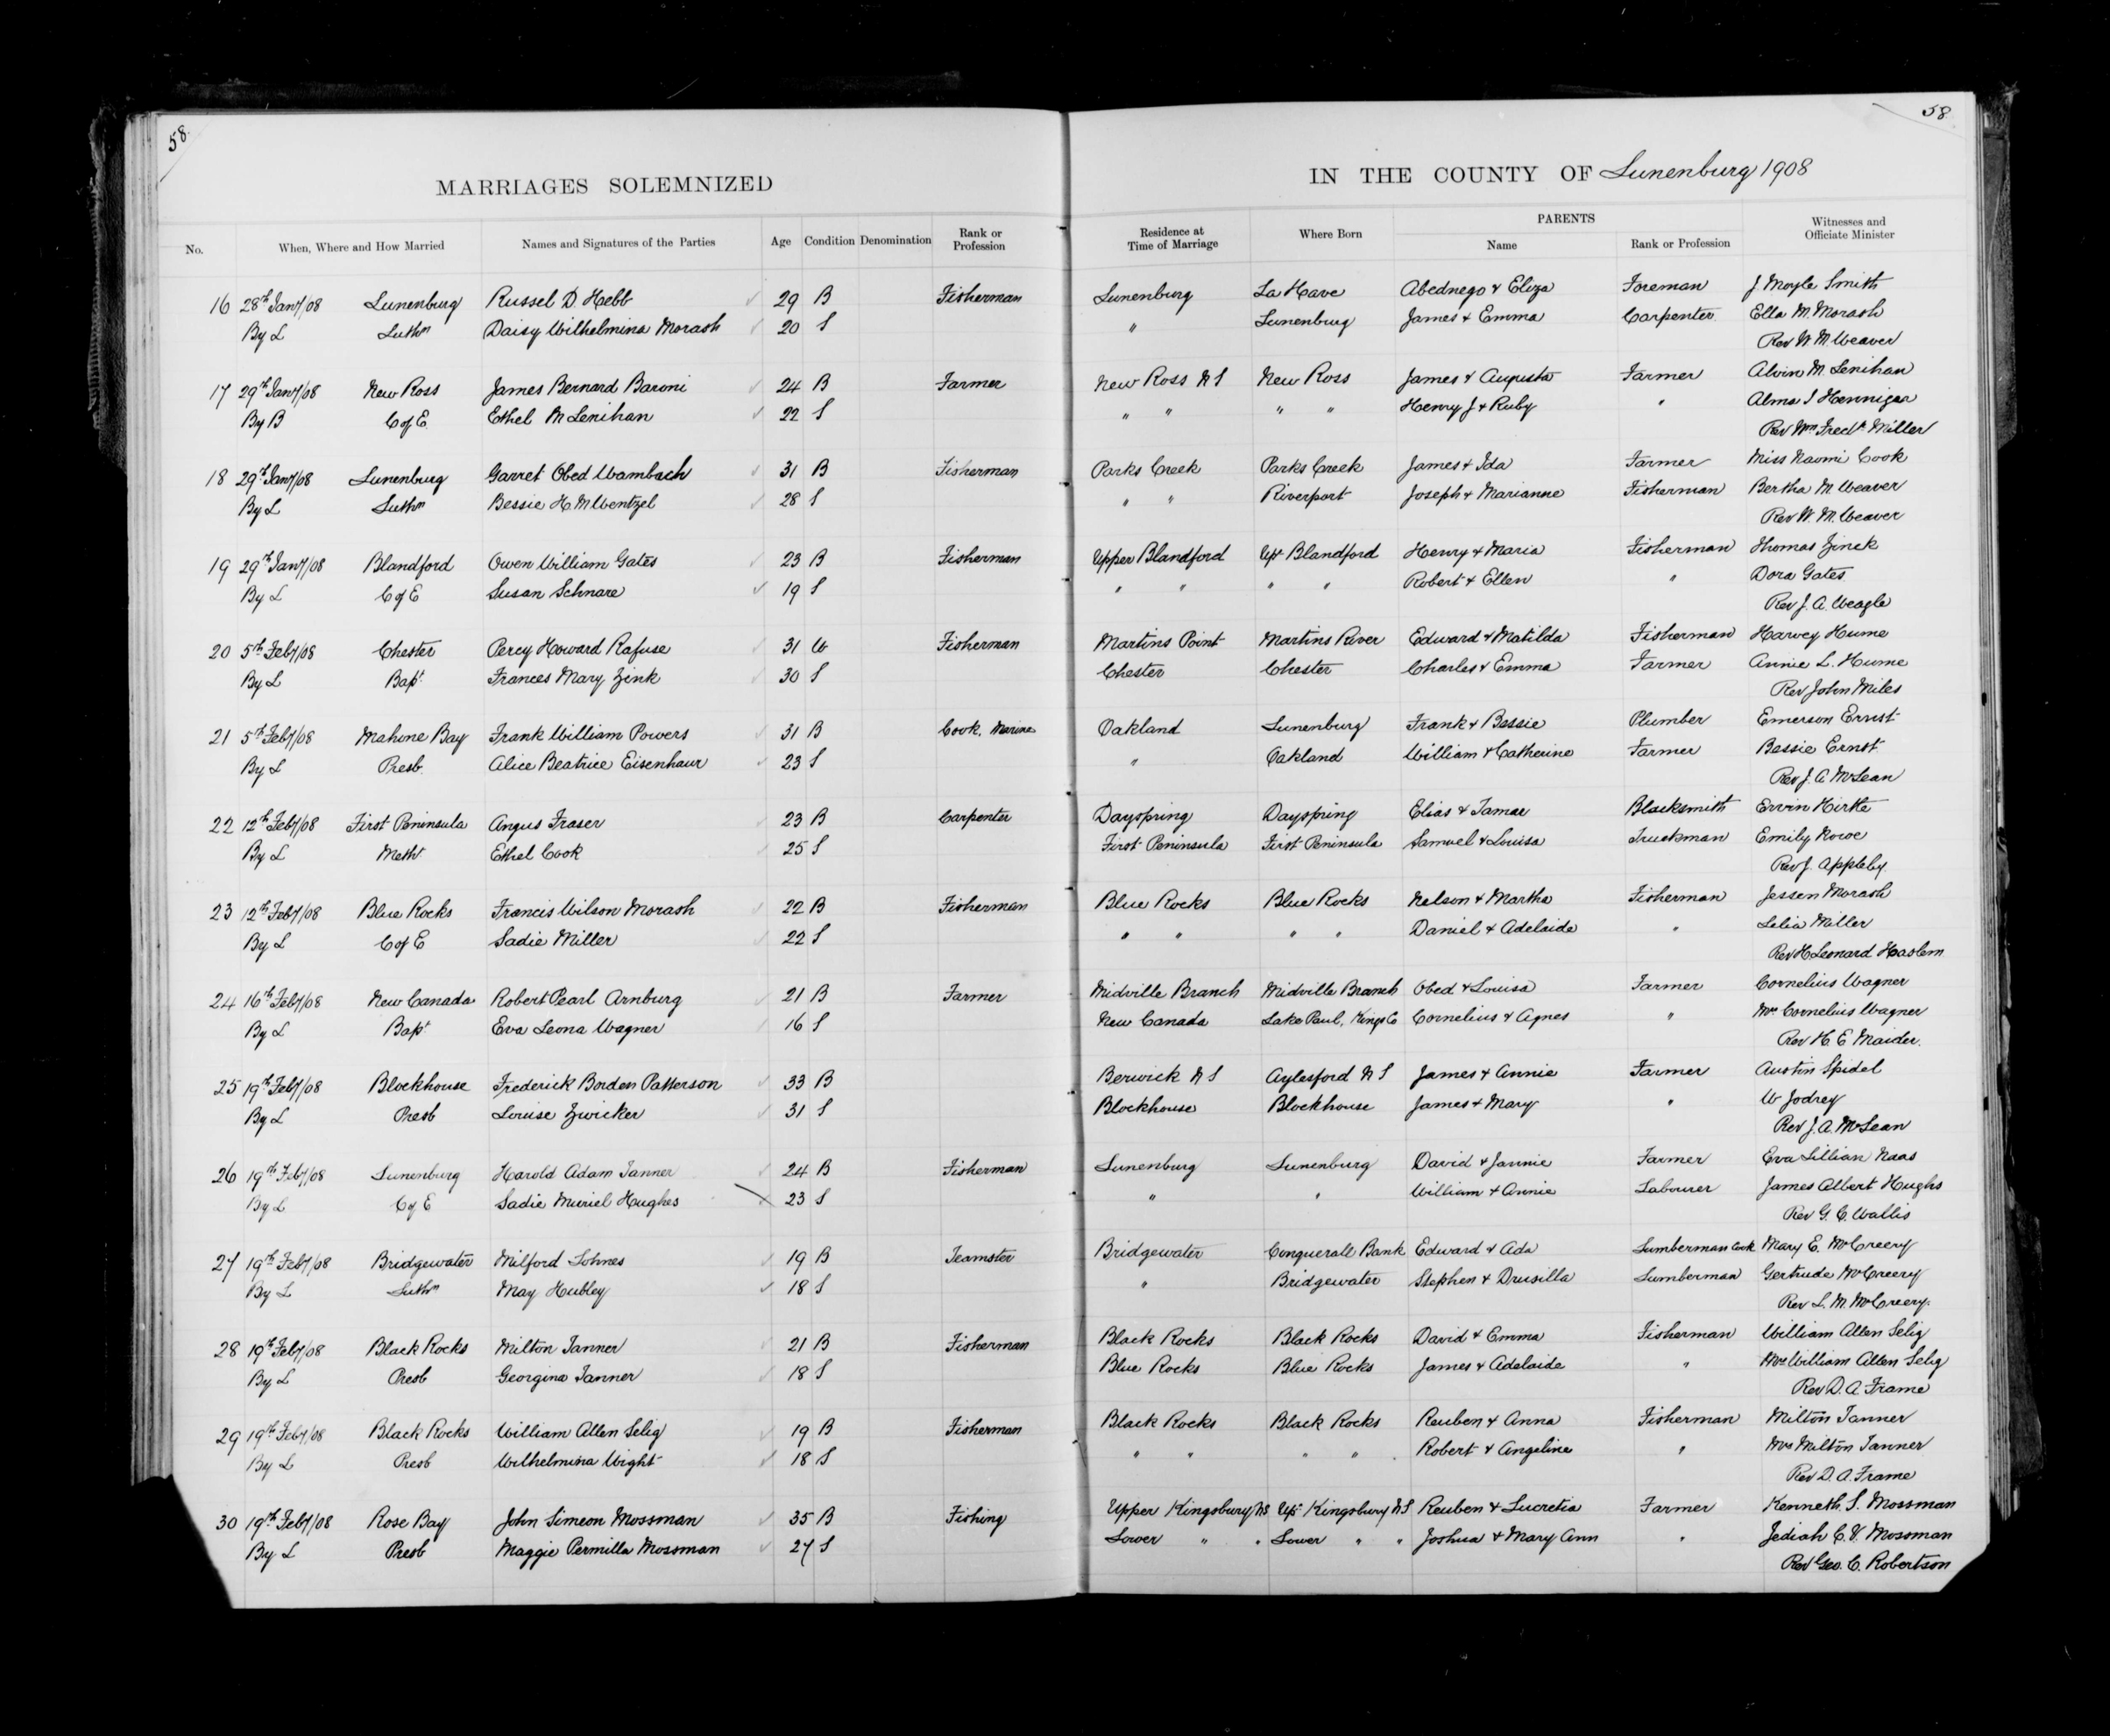 58
58
MARRIAGES SOLEMNIZED IN THE COUNTY OF Lunenburg 1908
No. When, Where and How Married Names and Signatures of the Parties Age Condition Denomination Rank or Profession Residence at Time of Marriage Where Born PARENTS Name Rank or Profession Witnesses and Officiate Minister
16 28th Jany/08 Lunenburg Russel D. Hebb 29 B Fisherman Lunenburg La Have Abednego & Eliza Foreman J. Moyle Smith
By L Luthn Daisy Wilhelmina Morash 20 S " Lunenburg James & Emma Carpenter Ella M. Morash
Rev W. M. Weaver
17 29th Jany/08 New Ross James Bernard Baroni 24 B Farmer New Ross N S New Ross James & Augusta Farmer Alvin M. Lenihan
By B C of E Ethel M Lenihan 22 S " " " " Henry J & Ruby " Alma I Hennigar
Rev Wm Fredk Miller
18 29th Jany/08 Lunenburg Garret Obed Wambach 31 B Fisherman Parks Creek Parks Creek James & Ida Farmer Miss Naomi Cook
By L Luthn Bessie H. M Wentzel 28 S " " Riverport Joseph & Marianne Fisherman Bertha M. Weaver
Rev W. M. Weaver
19 29th Jany/08 Blandford Owen William Gates 23 B Fisherman Upper Blandford Upr Blandford Henry & Maria Fisherman Thomas Zinck
By L C of E Susan Schnare 19 S " " " " Robert & Ellen " Dora Gates
Rev J. A. Weagle
20 5th Feby/08 Chester Percy Howard Rafuse 31 W Fisherman Martins Point Martins River Edward & Matilda Fisherman Harvey Hume
By L Bapt Frances Mary Zink 30 S Chester Chester Charles & Emma Farmer Annie L. Hume
Rev John Miles
21 5th Feby/08 Mahone Bay Frank William Powers 31 B Cook, Marine Oakland Lunenburg Frank & Bessie Plumber Emerson Ernst
By L Presb. Alice Beatrice Eisenhaur 23 S " Oakland William & Catherine Farmer Bessie Ernst
Rev J. A. McLean
22 12th Feby/08 First Peninsula Angus Fraser 23 B Carpenter Dayspring Dayspring Elias & Tamar Blacksmith Ervin Hirtle
By L Meth. Ethel Cook 25 S First Peninsula First Peninsula Samuel & Louisa Truckman Emily Rowe
Rev J. Appleby
23 12th Feby/08 Blue Rocks Francis Wilson Morash 22 B Fisherman Blue Rocks Blue Rocks Nelson & Martha Fisherman Jessen Morash
By L C of E Sadie Miller 22 S " " " " Daniel & Adelaide " Lelia Miller
Rev H Leonard Haslem
24 16th Feby/08 New Canada Robert Pearl Arnburg 21 B Farmer Midville Branch Midville Branch Obed & Louisa Farmer Cornelius Wagner
By L Bapt Eva Leona Wagner 16 S New Canada Lake Paul, Kings Co Cornelius & Agnes " Mrs Cornelius Wagner
Rev H. E Maider.
25 19th Feby/08 Blockhouse Frederick Borden Patterson 33 B Berwick N S Aylesford N S James & Annie Farmer Austin Spidel
By L Presb Louise Zwicker 31 S Blockhouse Blockhouse James & Mary " W Jodrey
Rev J. A. McLean
26 19th Feby/08 Lunenburg Harold Adam Tanner 24 B Fisherman Lunenburg Lunenburg David & Jannie Farmer Eva Lillian Naas
By L C of E Sadie Muriel Hughes 23 S " " William & Annie Labourer James Albert Hughs
Rev G. C. Wallis
27 19th Feby/08 Bridgewater Milford Lohnes 19 B Teamster Bridgewater Conquerall Bank Edward & Ada Lumberman Cook Mary E. McCreery
By L Luthn May Hubley 18 S " Bridgewater Stephen & Drusilla Lumberman Gertrude McCreery
Rev L. M. McCreery.
28 19th Feby/08 Black Rocks Milton Tanner 21 B Fisherman Black Rocks Black Rocks David & Emma Fisherman William Allen Selig
By L Presb Georgina Tanner 18 S Blue Rocks Blue Rocks James & Adelaide " Mrs William Allen Selig
Rev D. A. Frame
29 19th Feby/08 Black Rocks William Allen Selig 19 B Fisherman Black Rocks Black Rocks Reuben & Anna Fisherman Milton Tanner
By L Presb Wilhelmina Wight 18 S " " " " Robert & Angeline " Mrs Milton Tanner
Rev D. A. Frame
30 19th Feby/08 Rose Bay John Simeon Mossman 35 B Fishing Upper Kingsbury NS Upr Kingsbury N S Reuben & Lucretia Farmer Kenneth S. Mossman
By L Presb Maggie Permilla Mossman 27 S Lower " " Lower " " Joshua & Mary Ann " Jediah C. V. Mossman
Rev Geo. C. Robertson